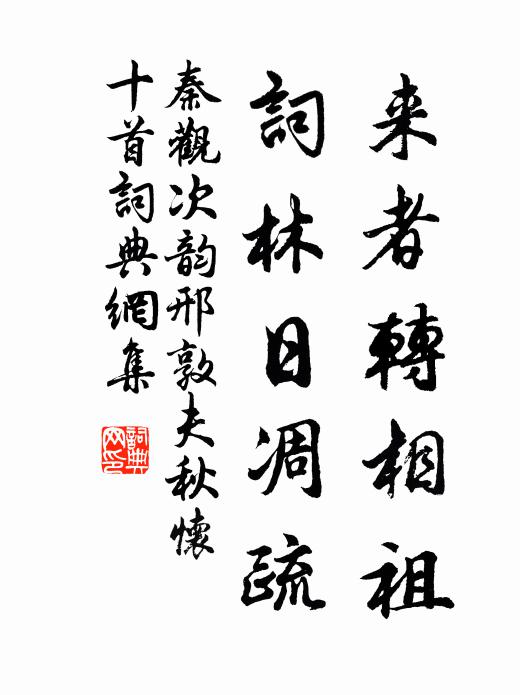 来者轉相祖
詞林日凋疏
秦觀次韵邢敦夫秋懷
十首詞典網集
詞典网印